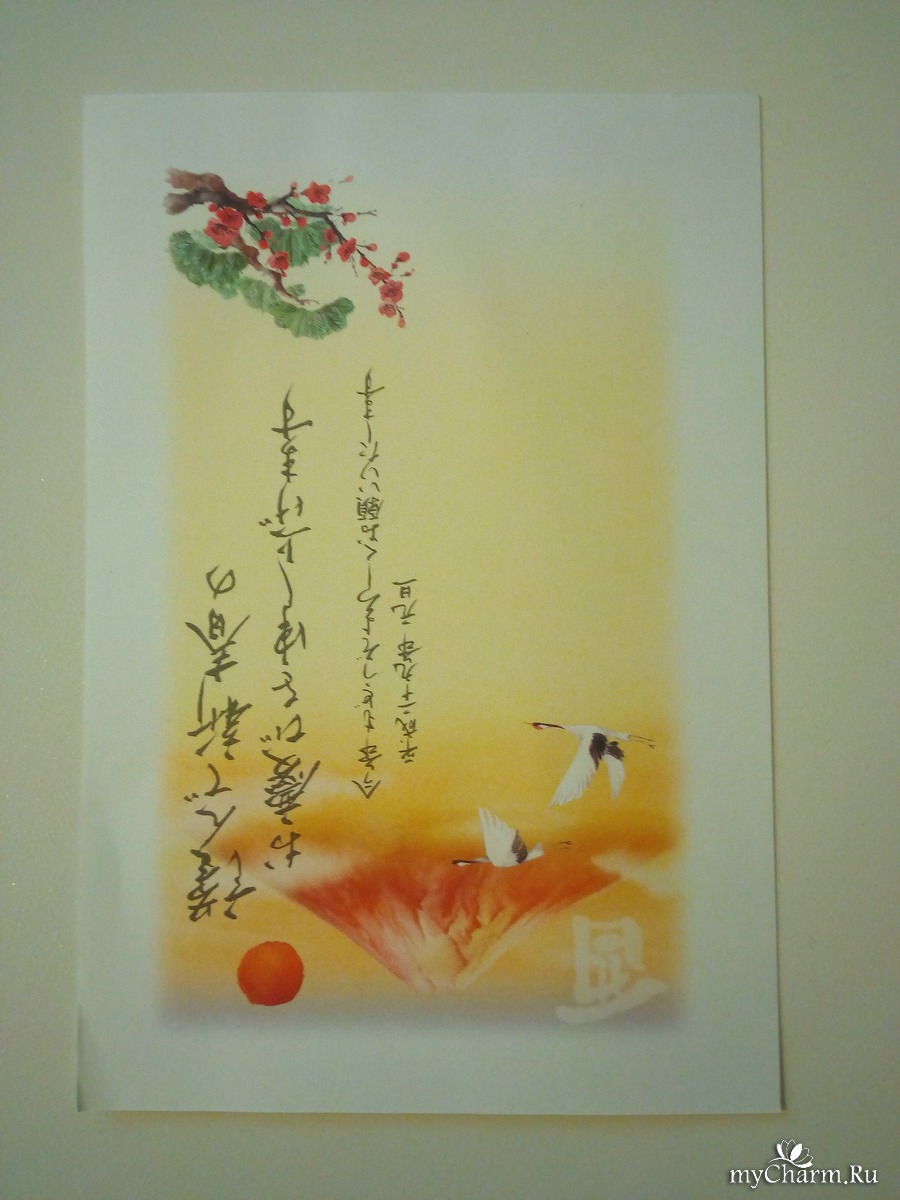 謹んで新春の
お慶びを申し上げます
今年もどうぞよろしくお願いいたします
平成二十九年 元旦
酉
myCharm.Ru